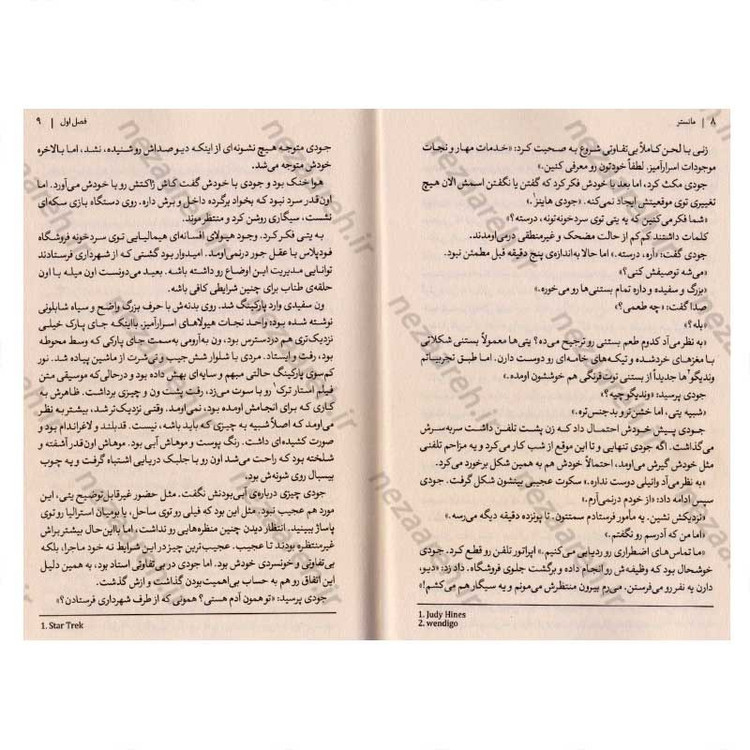 ۸ | مانستر
زنی با لحن کاملاً بی‌تفاوتی شروع به صحبت کرد: «خدمات مهار و نجات
موجودات اسرارآمیز. لطفاً خودتون رو معرفی کنین.»
جودی مکث کرد، اما بعد با خودش فکر کرد که گفتن یا نگفتن اسمش الان هیچ
تغییری توی موقعیتش ایجاد نمی‌کنه. «جودی هاینز.»
«شما فکر می‌کنین که یه یتی توی سردخونه‌تونه، درسته؟»
کلمات داشتند کم‌کم از حالت مضحک و غیرمنطقی درمی‌اومدند.
جودی گفت: «آره، درسته.» اما حالا به‌اندازه‌ی پنج دقیقه قبل مطمئن نبود.
«می‌شه توصیفش کنی؟»
«بزرگ و سفیده و داره تمام بستنی‌ها رو می‌خوره.»
صدا گفت: «چه طعمی؟»
«بله؟»
«به نظر می‌آد کدوم طعم بستنی رو ترجیح می‌ده؟ یتی‌ها معمولاً بستنی شکلاتی
با مغزهای خردشده و تیکه‌های خامه‌ای رو دوست دارن. اما طبق تجربیاتم
وندیگو²ها جدیداً از بستنی توت‌فرنگی هم خوششون اومده.»
جودی پرسید: «وندیگو چیه؟»
«شبیه یتی، اما خشن‌تر و بدجنس‌تره.»
جودی پیش خودش احتمال داد که زن پشت تلفن داشت سربه‌سرش
می‌گذاشت. اگه جودی تنهایی و تا این موقع از شب کار می‌کرد و یه مزاحم تلفنی
مثل خودش گیرش می‌اومد، احتمالاً خودش هم به همین شکل برخورد می‌کرد.
«به نظر می‌آد وانیلی دوست نداره.» سکوت عجیبی بینشون شکل گرفت. جودی
سپس ادامه داد: «از خودم درنمی‌آرم.»
«نزدیکش نشین. یه مأمور فرستادم سمتتون. تا پونزده دقیقه دیگه می‌رسه.»
«اما من که آدرسم رو نگفتم.»
«ما تماس‌های اضطراری رو ردیابی می‌کنیم.» اپراتور تلفن رو قطع کرد. جودی
خوشحال بود که وظیفه‌ش رو انجام داده و برگشت جلوی فروشگاه. داد زد: «دیو،
دارن یه نفر رو می‌فرستن. می‌رم بیرون منتظرش می‌مونم و یه سیگار هم می‌کشم!»
1. Judy Hines
2. wendigo
فصل اول | ۹
جودی متوجه هیچ نشونه‌ای از اینکه دیو صداش رو شنیده، نشد، اما بالاخره
خودش متوجه می‌شد.
هوا خنک بود و جودی با خودش گفت کاش ژاکتش رو با خودش می‌آورد. اما
اون‌قدر سرد نبود که بخواد برگرده داخل و برش داره. روی دستگاه بازی سکه‌ای
نشست، سیگاری روشن کرد و منتظر موند.
به یتی فکر کرد. وجود هیولای افسانه‌ای هیمالیایی توی سردخونه فروشگاه
فودپلاس با عقل جور درنمی‌اومد. امیدوار بود گشتی که از شهرداری فرستادند
توانایی مدیریت این اوضاع رو داشته باشه. بعید می‌دونست اون میله با اون
حلقه‌ی طناب برای چنین شرایطی کافی باشه.
ون سفیدی وارد پارکینگ شد. روی بدنه‌ش با حرف بزرگ واضح و سیاه شابلونی
نوشته شده بود: واحد نجات هیولاهای اسرارآمیز. بااینکه جای پارک خیلی
نزدیک‌تری هم در دسترس بود، ون به‌آرومی به‌سمت جای پارکی که وسط محوطه
بود، رفت و ایستاد. مردی با شلوار شش‌جیب و تی‌شرت از ماشین پیاده شد. نور
کم‌سوی پارکینگ حالتی مبهم و سایه‌ای بهش داده بود و درحالی‌که موسیقی متن
فیلم استار ترک¹ رو با سوت می‌زد، رفت پشت ون و چیزی برداشت. ظاهرش به
کاری که برای انجامش اومده بود، نمی‌اومد. وقتی نزدیک‌تر شد، بیشتر به نظر
می‌اومد که اصلاً شبیه به چیزی که باید باشه، نیست. قدبلند و لاغراندام بود و
صورت کشیده‌ای داشت. رنگ پوست و موهاش آبی بود. موهاش اون‌قدر آشفته و
شلخته بود که راحت می‌شد اون رو با جلبک دریایی اشتباه گرفت و یه چوب
بیسبال روی شونه‌ش بود.
جودی چیزی درباره‌ی آبی‌بودنش نگفت. مثل حضور غیرقابل‌توضیح یتی، این
مورد هم عجیب نبود. مثل این بود که فیلی رو توی ساحل، یا بومیان استرالیا رو توی
پاساژ ببینید. انتظار دیدن چنین منظره‌هایی رو نداشت، اما بااین‌حال بیشتر براش
غیرمنتظره بودند تا عجیب. عجیب‌ترین چیز در این شرایط نه خود ماجرا، بلکه
بی‌تفاوتی و خونسردی خودش بود. اما جودی در بی‌تفاوتی استاد بود، به همین دلیل
این اتفاق رو هم به حساب بی‌اهمیت‌بودن گذاشت و ازش گذشت.
جودی پرسید: «تو همون آدم هستی؟ همونی که از طرف شهرداری فرستادن؟»
1. Star Trek
nezaareh.ir